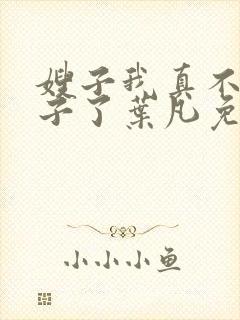 嫂子我真不
子了葉凡免
小小小鱼